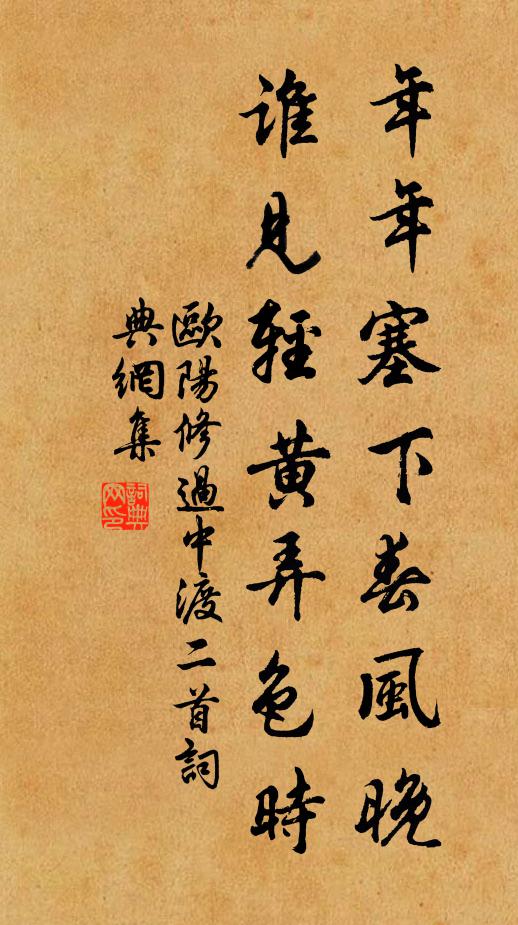 年年塞下春風晚
誰見輕黃弄色時
歐陽修過中渡二首詞
典網集
詞典
网印